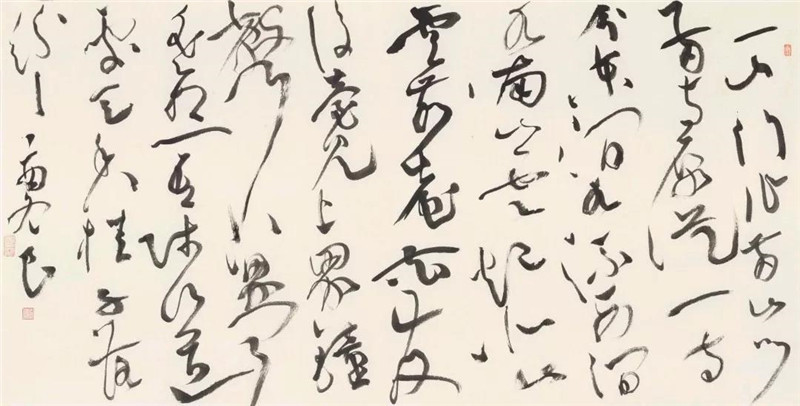 一山门作两山门
两寺原从一寺
分东涧水流西涧
水南山云起北山
云前台花发
后台见上界钟
声下界闻
遥想吾师行道
处天香桂子落
纷纷